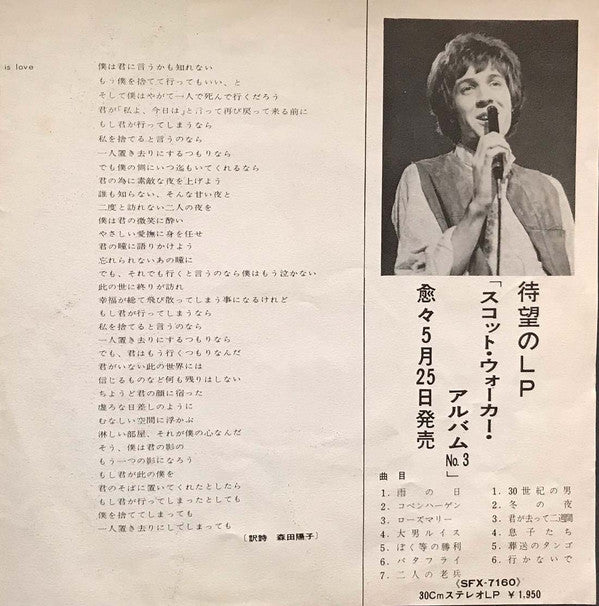 is love
僕は君に言うかも知れない
もう僕を捨てて行ってもいい、と
そして僕はやがて一人で死んで行くだろう
君が「私よ、今日は」と言って再び戻って来る前に
もし君が行ってしまうなら
私を捨てると言うのなら
一人置き去りにするつもりなら
でも僕の側にいつ迄もいてくれるなら
君の為に素敵な夜を上げよう
誰も知らない、そんな甘い夜と
二度と訪れない二人の夜を
僕は君の微笑に酔い
やさしい愛撫に身を任せ
君の瞳に語りかけよう
忘れられないあの瞳に
でも、それでも行くと言うのなら僕はもう泣かない
此の世に終りが訪れ
幸福が総て飛び散ってしまう事になるけれど
もし君が行ってしまうなら
私を捨てると言うのなら
一人置き去りにするつもりなら
でも、君はもう行くつもりなんだ
君がいない此の世界には
信じるものなど何も残りはしない
ちょうど君の顔に宿った
虚ろな日差しのように
むなしい空間に浮かぶ
淋しい部屋、それが僕の心なんだ
そう、僕は君の影の
もう一つの影になろう
もし君が此の僕を
君のそばに置いてくれたとしたら
もし君が行ってしまったとしても
僕を捨ててしまっても
一人置き去りにしてしまっても
〔訳詩 森田陽子〕
待望のLP
「スコット・ウォーカー・
アルバムNo.3」
愈々5月25日発売
曲目
1. 雨の日
2. コペンハーゲン
3. ローズマリー
4. 大男ルイス
5. ぼく等の勝利
6. バタフライ
7. 二人の老兵
1. 30世紀の男
2. 冬の夜
3. 君が去って二週間
4. 息子たち
5. 葬送のタンゴ
6. 行かないで
《SFX-7160》
30CmステレオLP ¥1,950